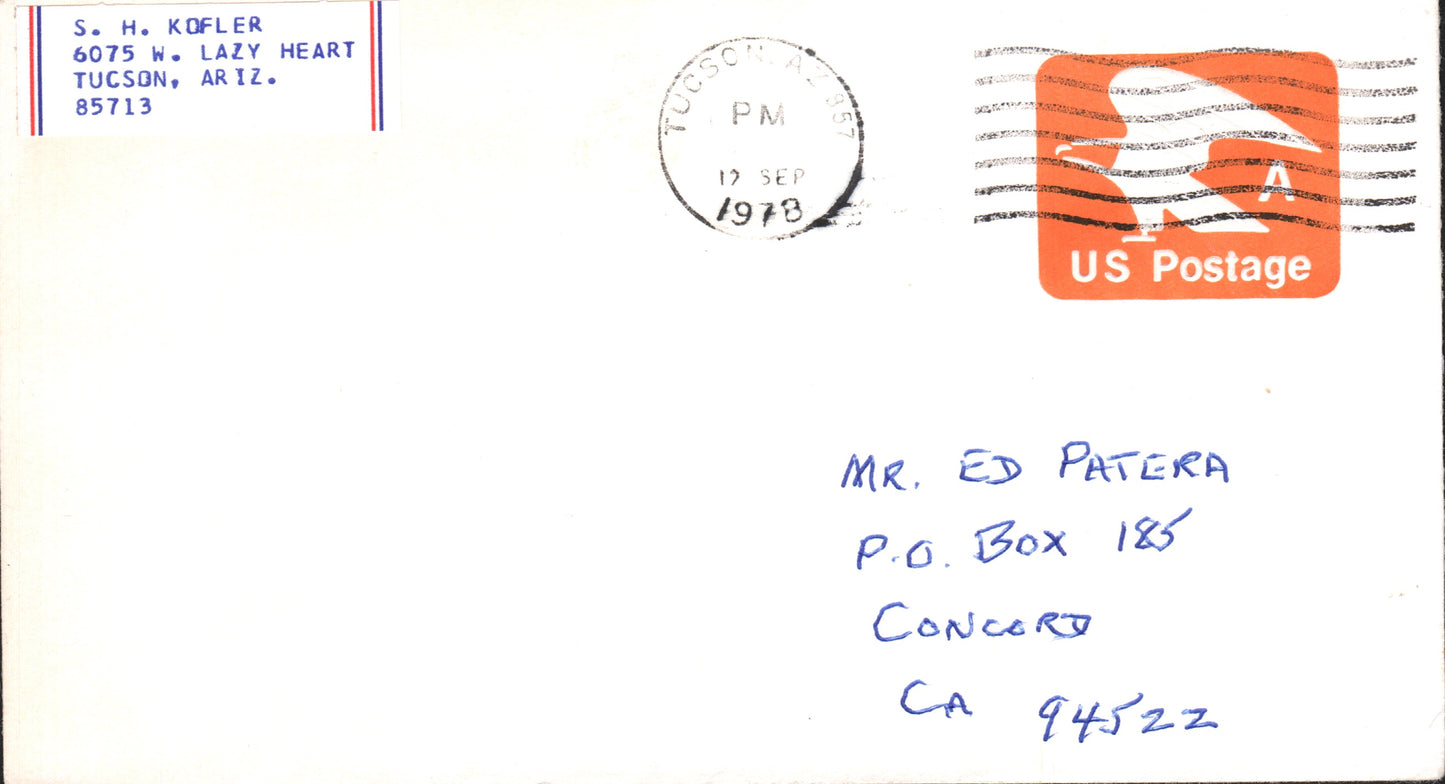 S. H. KOFLER
6075 W. LAZY HEART
TUCSON, ARIZ.
85713
TUCSON, AZ 857
PM
SEP
1978
A
US Postage
MR. ED PATERA
P.O. BOX 185
CONCORD
CA 94522